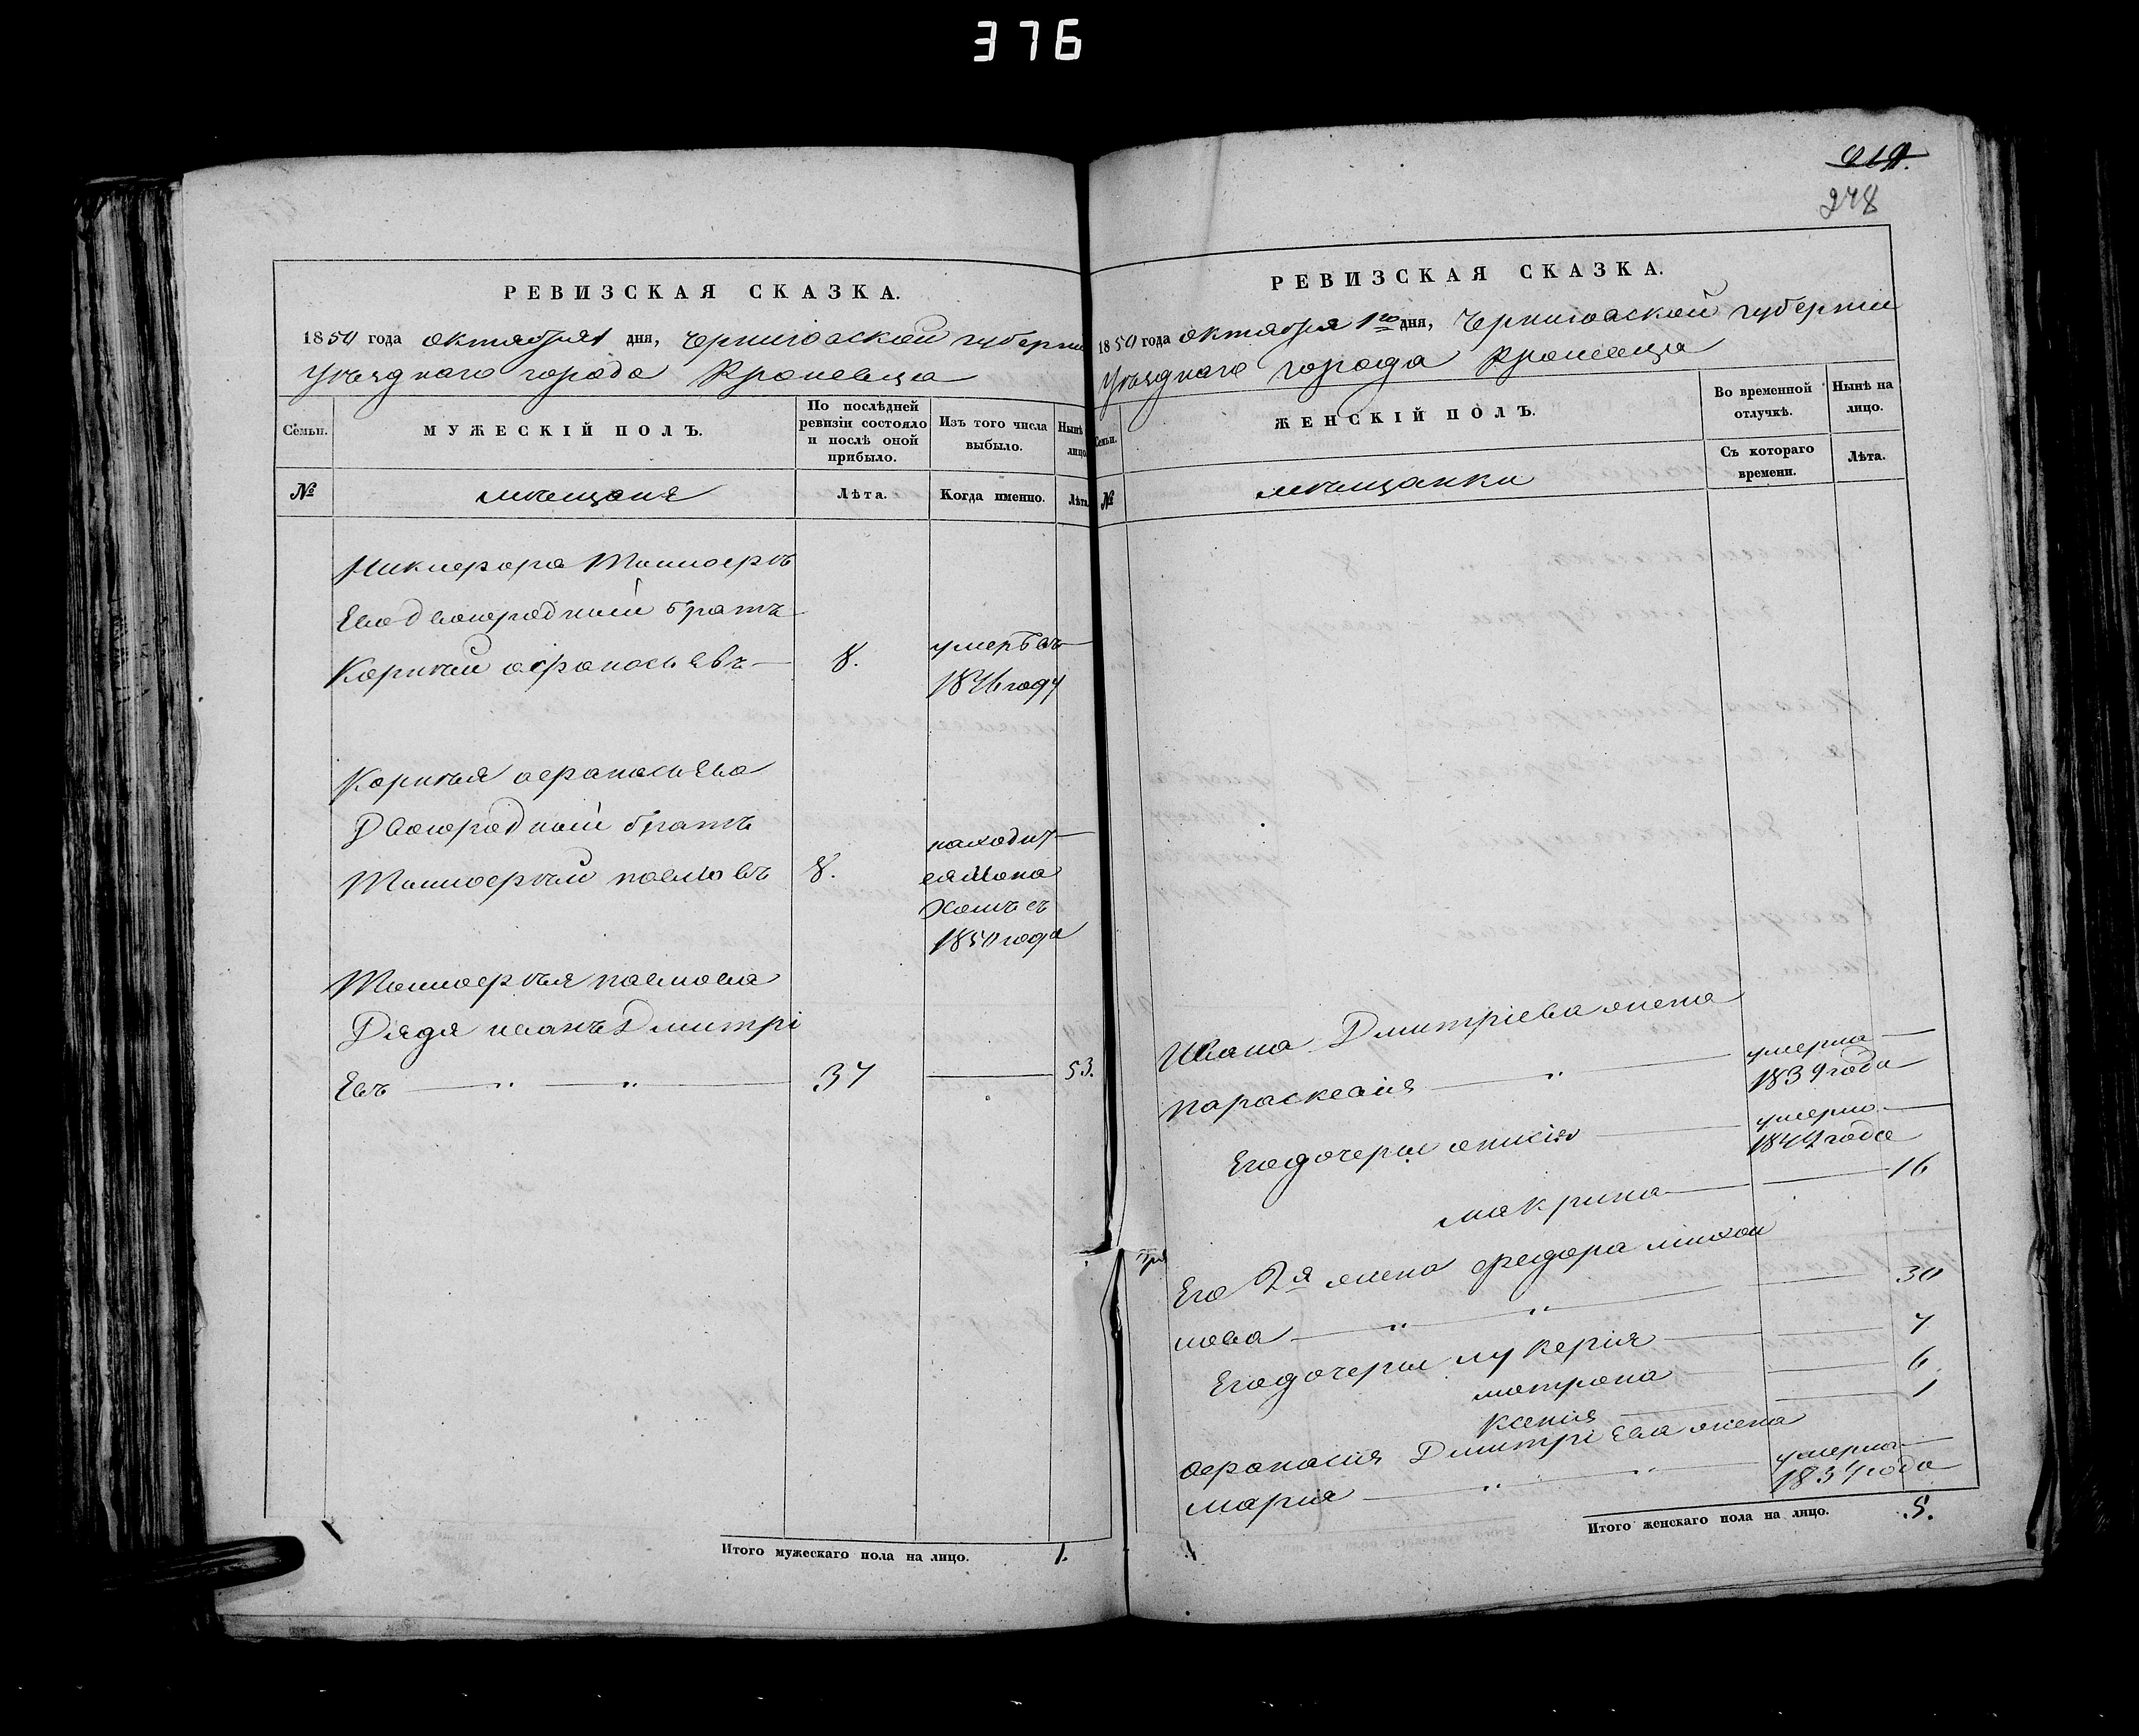 376
278
РЕВИЗСКАЯ СКАЗКА.
1850 года октября 1 дня, Черниговской губерни
Уѣзднаго города Кролевца
Семьи.
МУЖЕСКІЙ ПОЛЪ.
По послѣдней ревизіи состояло и послѣ оной прибыло.
Изъ того числа выбыло.
Нынѣ лицо
№
мѣщаня
Лѣта.
Когда именно.
Лѣта
Никифора
Его двоюродный братъ
Корнѣй Афанасьевъ 8. умеръ въ
1846 году
Корнѣя Афанасьева
Двоюродный братъ
Павловъ 8. находит
ся
1850 года
Павлова
Дядя Иванъ Дмитрі
Евъ 37 53.
Итого мужескаго пола на лицо. 1.
РЕВИЗСКАЯ СКАЗКА.
1850 года октября 1го дня, Черниговской губерніи
Уѣзднаго города Кролевца
Семьи.
ЖЕНСКІЙ ПОЛЪ.
Во временной отлучкѣ.
Нынѣ на лицо.
Съ котораго времени.
Лѣта.
№
мѣщанки
Ивана Дмитріева жена
Параскевія умерла
1839 года
Его дочери умерла
года
Макрина 16
Его 2я жена Федора Михай
лова 30
Его дочери Лукерія 7
Матрона 6
Ксенія 1
Афанасія Дмитріева жена
Марія умерла
1837 года
Итого женскаго пола на лицо. 5.